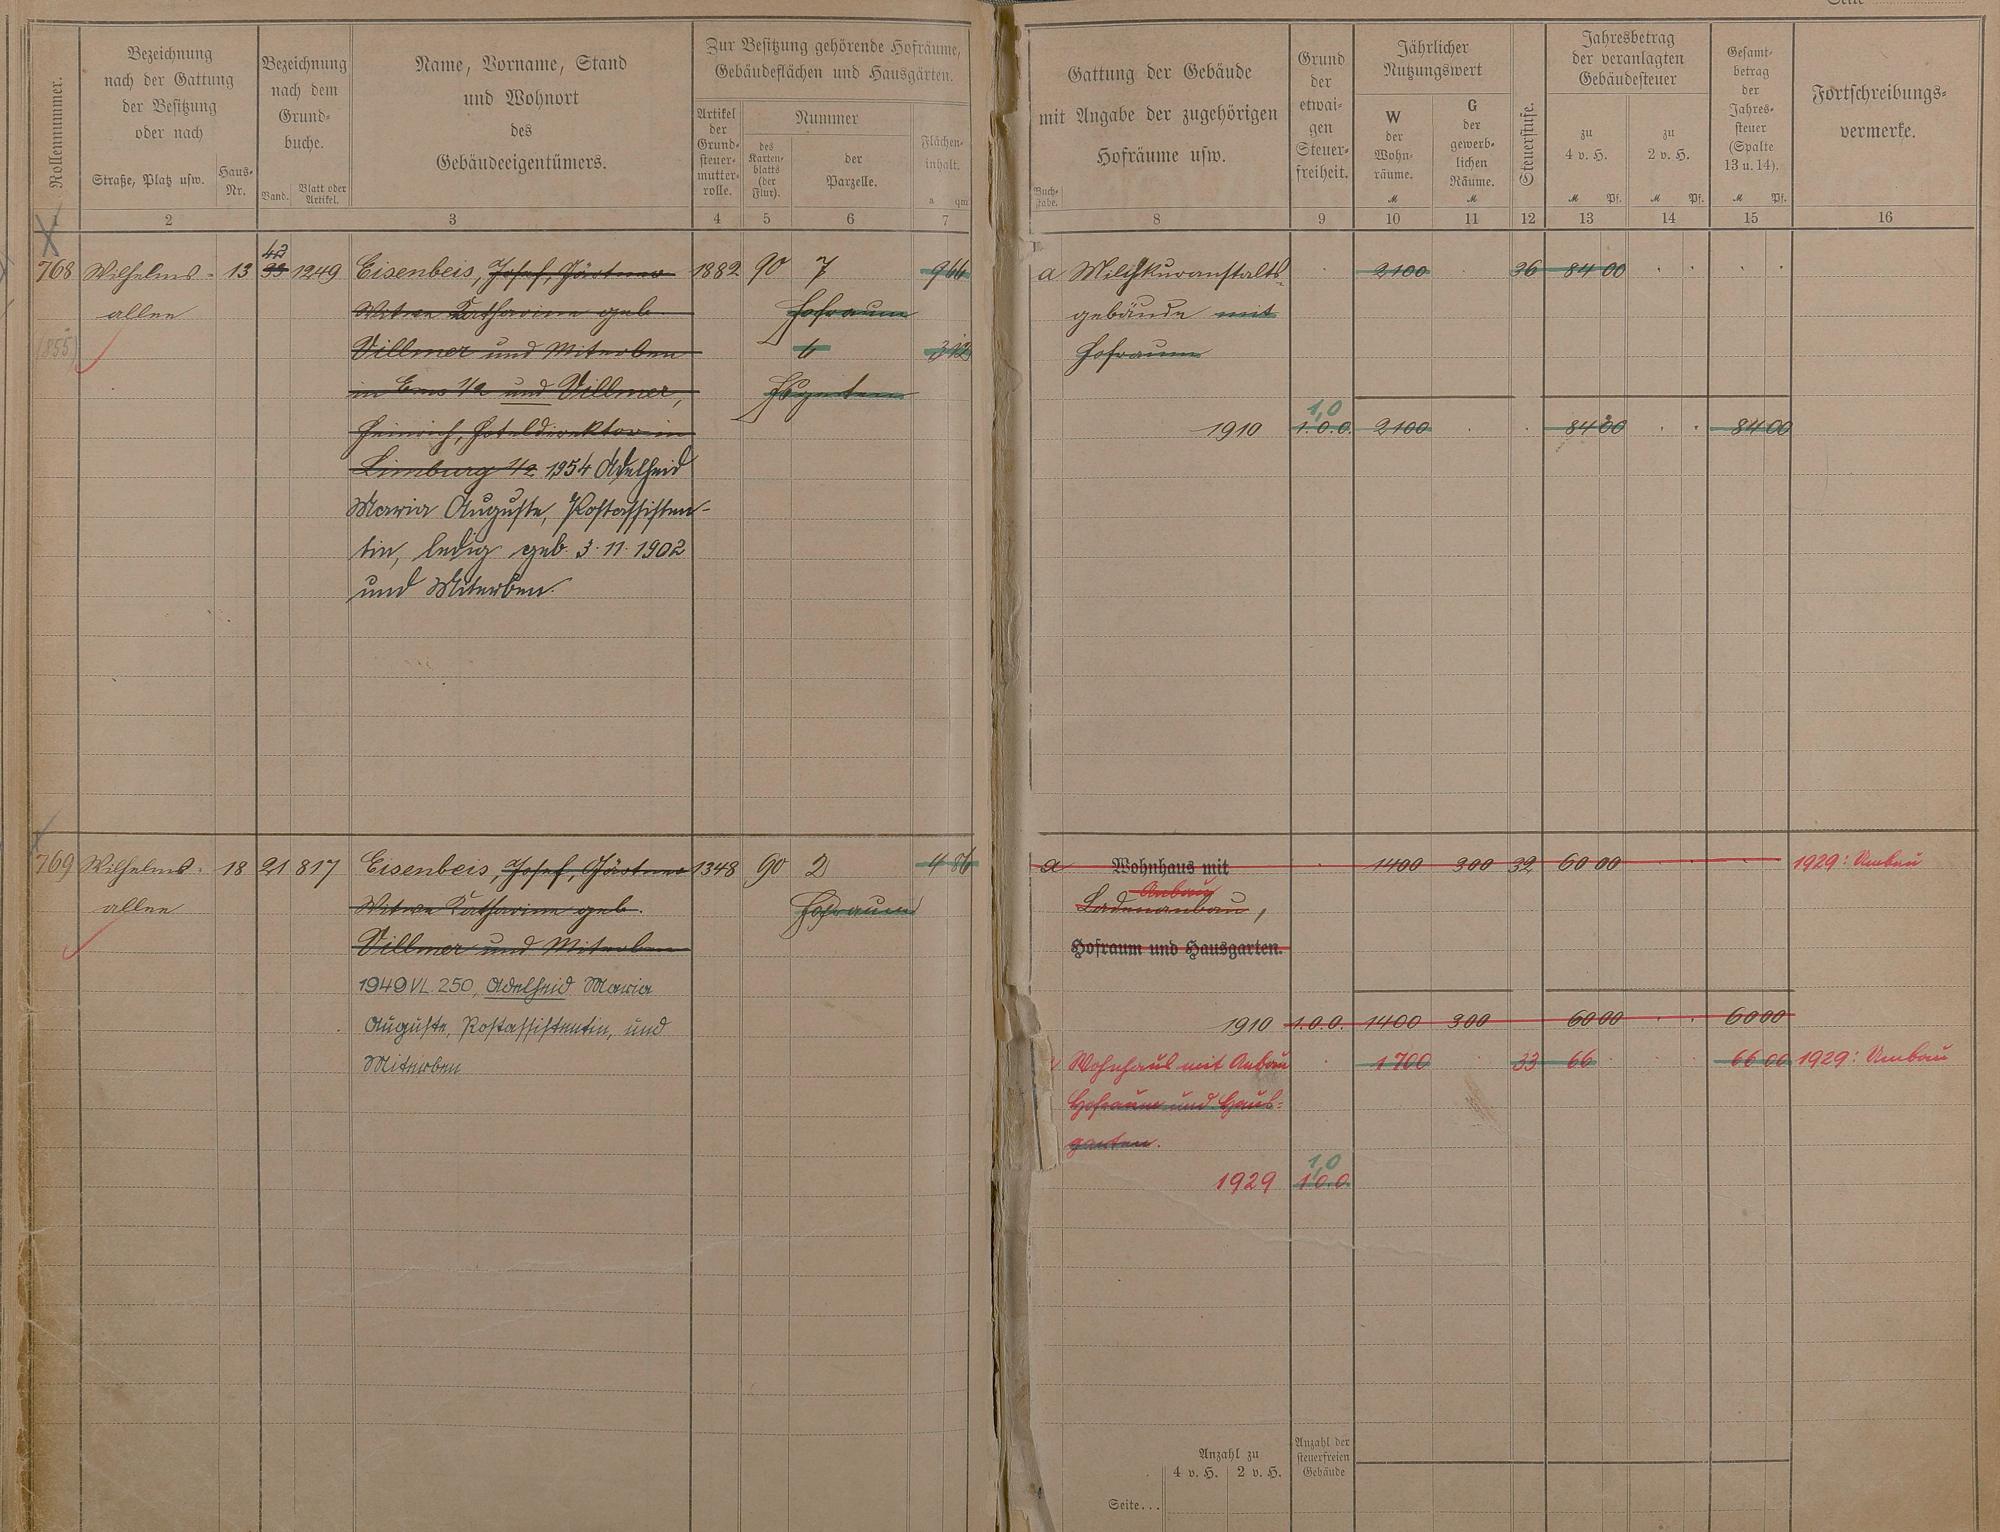 Seite
Rollennummer.
Bezeichnung
nach der Gattung
der Besitzung
oder nach
Straße, Platz usw.
Haus-
Nr.
Bezeichnung
nach dem
Grund-
buche.
Band.
Blatt oder
Artikel.
Name, Vorname, Stand
und Wohnort
des
Gebäudeeigentümers.
Zur Besitzung gehörende Hofräume,
Gebäudeflächen und Hausgärten.
Artikel
der
Grund-
steuer-
mutter-
rolle.
Nummer
des
Karten-
blatts
(der
Flur).
der
Parzelle.
Flächen-
inhalt.
a qm
Buch-
stabe.
Gattung der Gebäude
mit Angabe der zugehörigen
Hofräume usw.
Grund
der
etwai-
gen
Steuer-
freiheit.
Jährlicher
Nutzungswert
W
der
Wohn-
räume.
M
G
der
gewerb-
lichen
Räume.
M
Steuerstufe.
Jahresbetrag
der veranlagten
Gebäudesteuer
zu
4 v. H.
M Pf.
zu
2 v. H.
M Pf.
Gesamt-
betrag
der
Jahres-
steuer
(Spalte
13 u. 14).
M Pf.
Fortschreibungs-
vermerke.
1 2 3 4 5 6 7 8 9 10 11 12 13 14 15 16
42
768 Wilhelms- 13 33 1249 Eisenbeis, Josef, Gärtner 1882 90 7 9 66 a Milchkuranstalts- 2100 36 84 00
allee Witwe Katharine geb. Hofraum gebäude mit
(855) Villmer und Miterben 6 3 12 Hofraum
in Ems 1/2 und Villmer, Hsgarten
1,0
Heinrich, Hoteldirektor in 1910 1.0.0. 2100 84 00 84 00
Limburg 1/2 1954 Adelheid
Maria Auguste, Postassisten-
tin, ledig geb. 3.11.1902
und Miterben.
769 Wilhelms- 18 21 817 Eisenbeis, Josef, Gärtner 1348 90 2 4 86 a Wohnhaus mit 1400 300 32 60 00 1929: Umbau
Anbau
allee Witwe Katharine geb. Hofraum Ladenanbau,
Villmer und Miterben Hofraum und Hausgarten.
1949 VL 250, Adelheid Maria
Auguste, Postassistentin, und 1910 1.0.0. 1400 300 60 00 60 00
Miterben Wohnhaus mit Anbau 1700 33 66 66 00 1929: Umbau
Hofraum und Haus-
garten.
1,0
1929 1.0.0.
Anzahl zu
4 v. H. 2 v. H.
Anzahl der
steuerfreien
Gebäude
Seite...